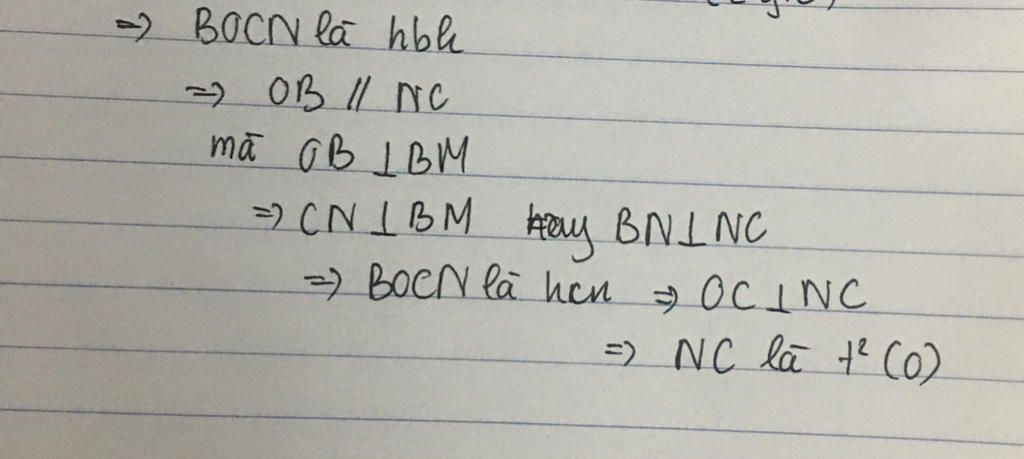 ⇒ BOCN là hbh
⇒ OB // NC
mà OB ⊥ BM
⇒ CN ⊥ BM hay BN ⊥ NC
⇒ BOCN là hcn ⇒ OC ⊥ NC
⇒ NC là t² (O)